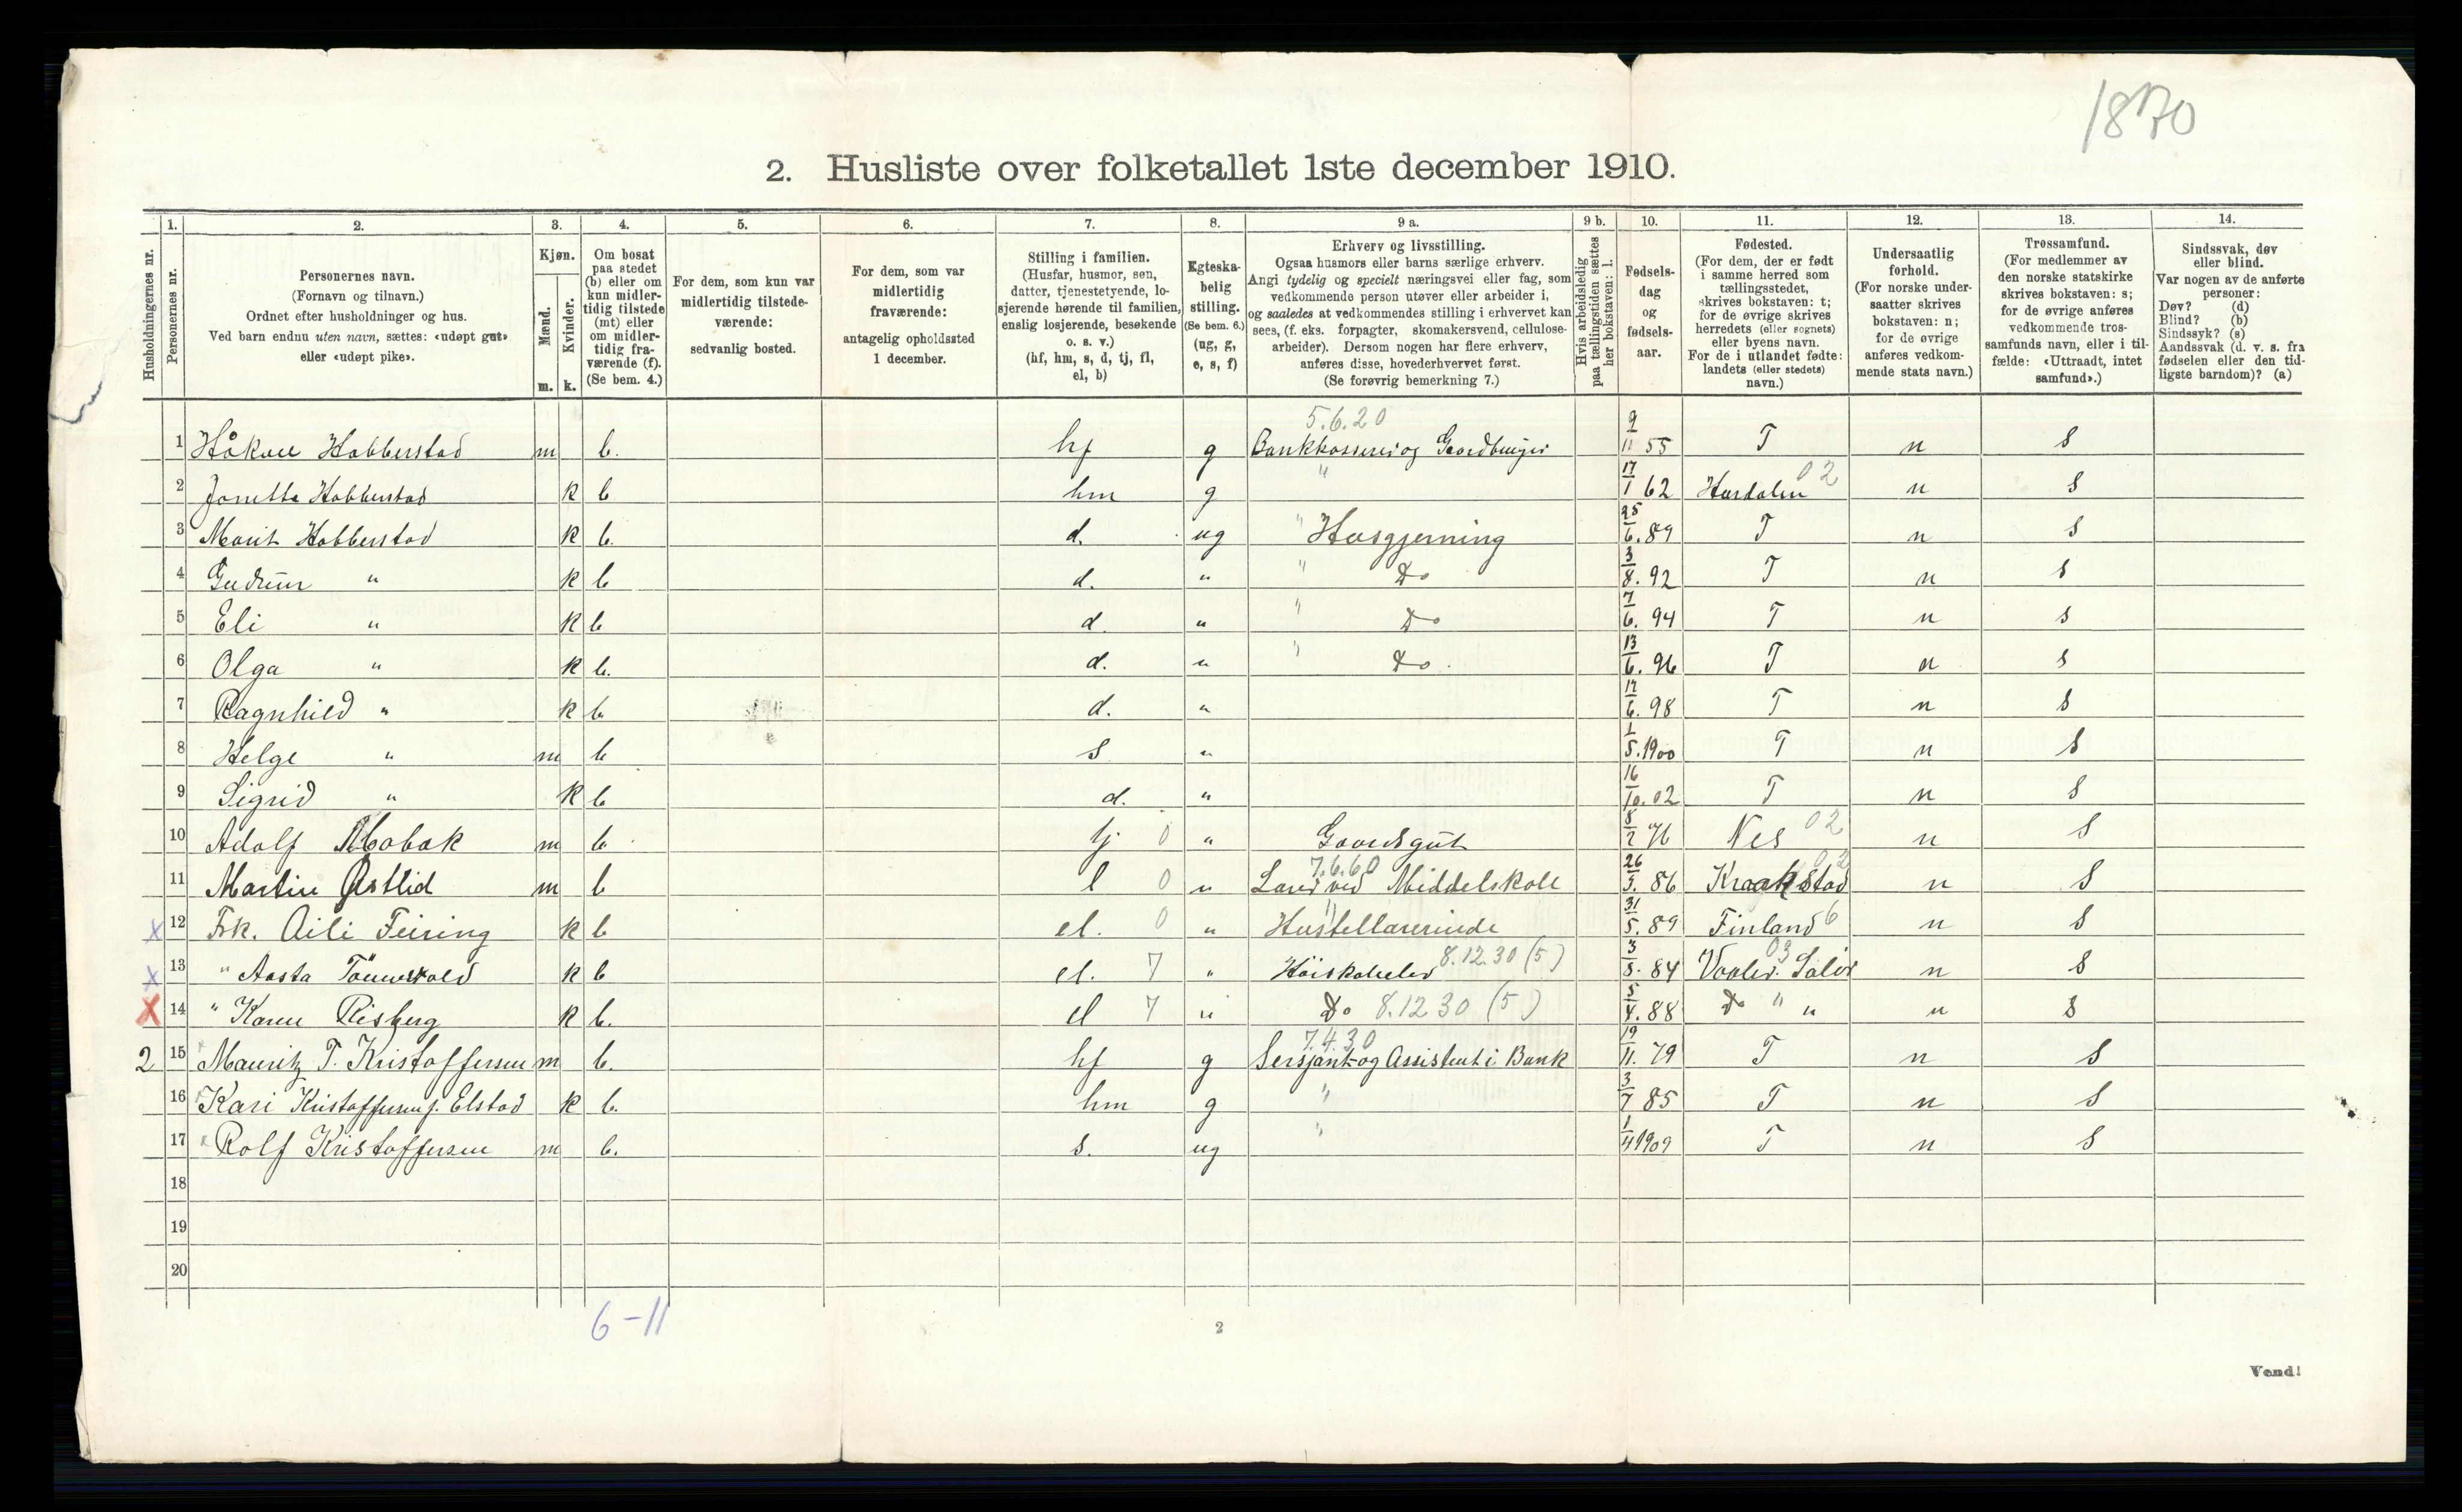 1870
2. Husliste over folketallet 1ste december 1910.
1. 2. 3. 4. 5. 6. 7. 8. 9 a. 9 b. 10. 11. 12. 13. 14.
Husholdningernes nr.
Personernes nr.
Personernes navn.
(Fornavn og tilnavn.)
Ordnet efter husholdninger og hus.
Ved barn endnu uten navn, sættes: «udøpt gut»
eller «udøpt pike».
Kjøn.
Mænd.
Kvinder.
m. k.
Om bosat
paa stedet
(b) eller om
kun midler-
tidig tilstede
(mt) eller
om midler-
tidig fra-
værende (f).
(Se bem. 4.)
For dem, som kun var
midlertidig tilstede-
værende:
sedvanlig bosted.
For dem, som var
midlertidig
fraværende:
antagelig opholdssted
1 december.
Stilling i familien.
(Husfar, husmor, søn,
datter, tjenestetyende, lo-
sjerende hørende til familien,
enslig losjerende, besøkende
o. s. v.)
(hf, hm, s, d, tj, fl,
el, b)
Egteska-
belig
stilling.
(Se bem. 6.)
(ug, g,
e, s, f)
Erhverv og livsstilling.
Ogsaa husmors eller barns særlige erhverv.
Angi tydelig og specielt næringsvei eller fag, som
vedkommende person utøver eller arbeider i,
og saaledes at vedkommendes stilling i erhvervet kan
sees, (f. eks. forpagter, skomakersvend, cellulose-
arbeider). Dersom nogen har flere erhverv,
anføres disse, hovederhvervet først.
(Se forøvrig bemerkning 7.)
Hvis arbeidsledig
paa tællingstiden sættes
her bokstaven: l.
Fødsels-
dag
og
fødsels-
aar.
Fødested.
(For dem, der er født
i samme herred som
tællingsstedet,
skrives bokstaven: t;
for de øvrige skrives
herredets (eller sognets)
eller byens navn.
For de i utlandet fødte:
landets (eller stedets)
navn.)
Undersaatlig
forhold.
(For norske under-
saatter skrives
bokstaven: n;
for de øvrige
anføres vedkom-
mende stats navn.)
Trossamfund.
(For medlemmer av
den norske statskirke
skrives bokstaven: s;
for de øvrige anføres
vedkommende tros-
samfunds navn, eller i til-
fælde: «Uttraadt, intet
samfund».)
Sindssvak, døv
eller blind.
Var nogen av de anførte
personer:
Døv? (d)
Blind? (b)
Sindssyk? (s)
Aandssvak (d. v. s. fra
fødselen eller den tid-
ligste barndom)? (a)
5.6.20
1 Håkon Habberstad m b. hf g Bankkasserer og Gaardbruger 9/11 55 T n S
2 Jonette Habberstad k b hm g " 17/1 62 Hurdalen 02 n S
3 Marit Habberstad k b. d. ug " Husgjerning 25/6. 89 T n S
4 Gudrun " k b d. " " Do 3/8. 92 T n S
5 Eli " k b d. " " Do 7/6. 94 T n S
6 Olga " k b. d. " " Do 13/6. 96 T n S
7 Ragnhild " k b d. " 17/6. 98 T n S
8 Helge " m b s " 1/5. 1900 T n S
9 Sigrid " k b d. " 16/10. 02 T n S
10 Adolf m b tj 0 " Gaardsgut 8/2 76 Nes 02 n S
7.6.60
11 Martin Østlid m b l 0 " Lærer ved Middelskole 26/3. 86 Kraakstad 02 n S
x 12 Frk. Aili Feiring k b el. 0 " Hustellærerinde " 31/5. 89 Finland 6 n S
x 13 " Aasta k b el. 7 " Höiskoleelev 8.12.30 (5) 3/8. 84 Vaaler. Solør 03 n S
X 14 " Karen Risberg k b. el 7 " Do 8.12.30 (5) 5/4. 88 Do " " n S
7.4.30
2 15 Mauritz T. Kristoffersen m b. hf g Sersjant og Assistent i Bank 19/11. 79 T n S
16 Kari Kristoffersen f. Elstad k b. hm g " 3/7 85 T n S
17 Rolf Kristoffersen m b. s. ug " 1/4 1909 T n S
18
19
20
6-11
2
Vend!